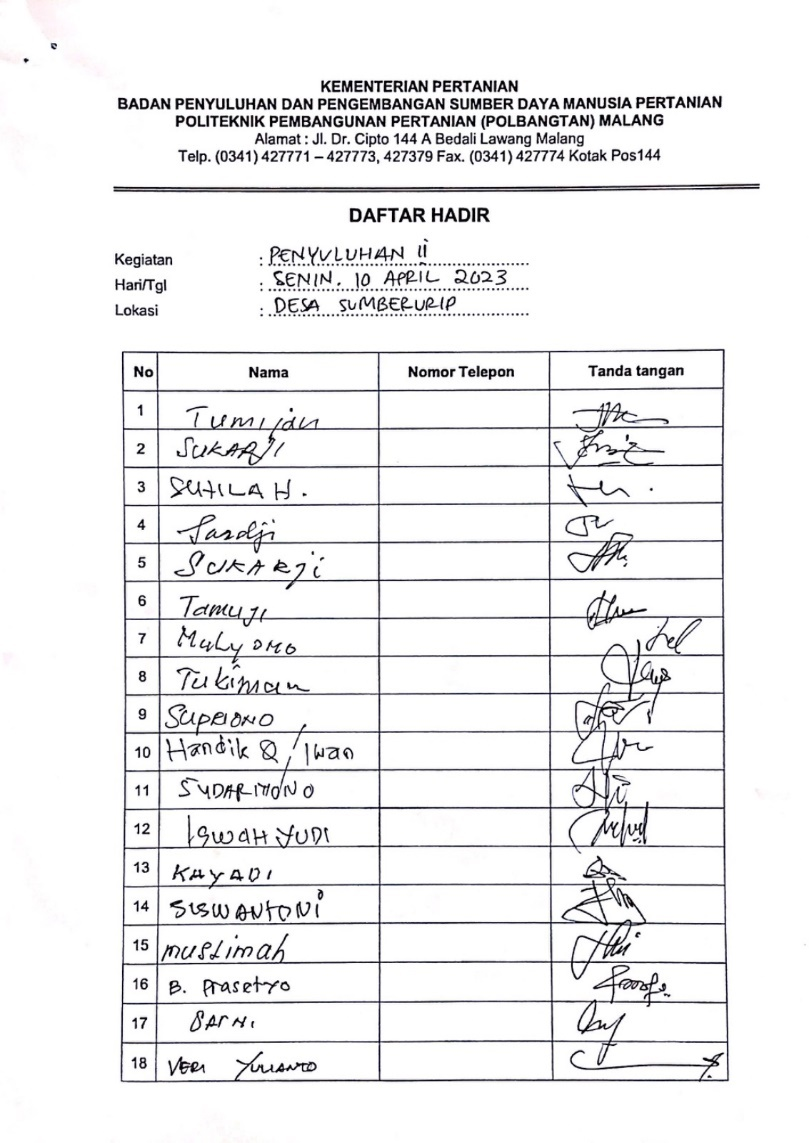 KEMENTERIAN PERTANIAN
BADAN PENYULUHAN DAN PENGEMBANGAN SUMBER DAYA MANUSIA PERTANIAN
POLITEKNIK PEMBANGUNAN PERTANIAN (POLBANGTAN) MALANG
Alamat : Jl. Dr. Cipto 144 A Bedali Lawang Malang
Telp. (0341) 427771 – 427773, 427379 Fax. (0341) 427774 Kotak Pos144
DAFTAR HADIR
Kegiatan : PENYULUHAN II
Hari/Tgl : SENIN. 10 APRIL 2023
Lokasi : DESA SUMBERURIP
No Nama Nomor Telepon Tanda tangan
1 Tumijan
2 SUKARJI
3
4 Sardji
5 SUKARJI
6 TAMUJI
7 Mulyono
8 Tukiman
9 SUPRIONO
10 Handik Q / Iwan
11 SUDARMONO
12 ISWAHYUDI
13 KAYADI
14 SISWANTONI
15 muslimah
16 B. Prasetyo
17
18 VERI YULIANTO